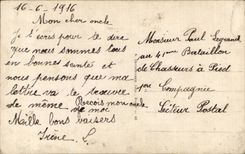 16-6-1916
Mon cher oncle
Je t'écris pour te dire
que nous sommes tous
en bonne santé et
nous pensons que ma
lettre va te trouver
de même. Reçois mon oncle
de moi
Mille bons baisers
Irène C.
Monsieur Paul Legrand
au 41ème Bataillon
de Chasseurs à Pied
1ère Compagnie
Secteur Postal